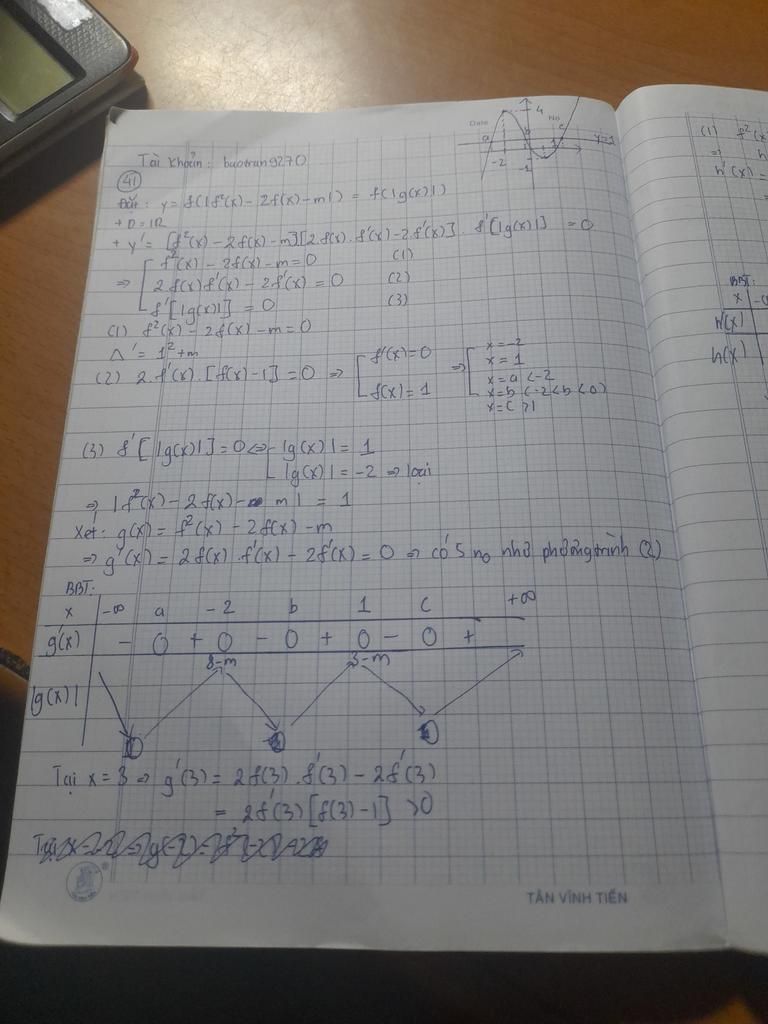 4
Date
No
a
b
c
y=1
-2
1
-1
Tài khoản: baotran9270
41
Đặt: y = f(|f²(x) - 2f(x) - m|) = f(|g(x)|)
+ D = IR
+ y' = [f²(x) - 2f(x) - m][2.f(x).f'(x) - 2.f'(x)]. f'[|g(x)|] = 0
⇒ [ f²(x) - 2f(x) - m = 0 (1)
2f(x)f'(x) - 2f'(x) = 0 (2)
f'[|g(x)|] = 0 (3)
(1) f²(x) - 2f(x) - m = 0
Δ' = 1² + m
(2) 2.f'(x).[f(x) - 1] = 0 ⇒ [ f'(x) = 0
f(x) = 1
⇒ [ x = -2
x = 1
x = a < -2
x = b (-2 < b < 0)
x = c > 1
(3) f'[|g(x)|] = 0 ⇔ [ |g(x)| = 1
|g(x)| = -2 ⇒ loại
⇒ |f²(x) - 2f(x) - m| = 1
Xét: g(x) = f²(x) - 2f(x) - m
⇒ g'(x) = 2f(x).f'(x) - 2f'(x) = 0 ⇒ có 5 no như phương trình (2)
BBT:
x -∞ a -2 b 1 c +∞
g'(x) - 0 + 0 - 0 + 0 - 0 +
8-m 3-m
|g(x)|
Tại x = 3 ⇒ g'(3) = 2f(3).f'(3) - 2f'(3)
= 2f'(3)[f(3) - 1] > 0
TÂN VĨNH TIẾN
(1) f²(x
⇒ h
h'(x) =
=
BBT:
x -∞
h'(x)
h(x)